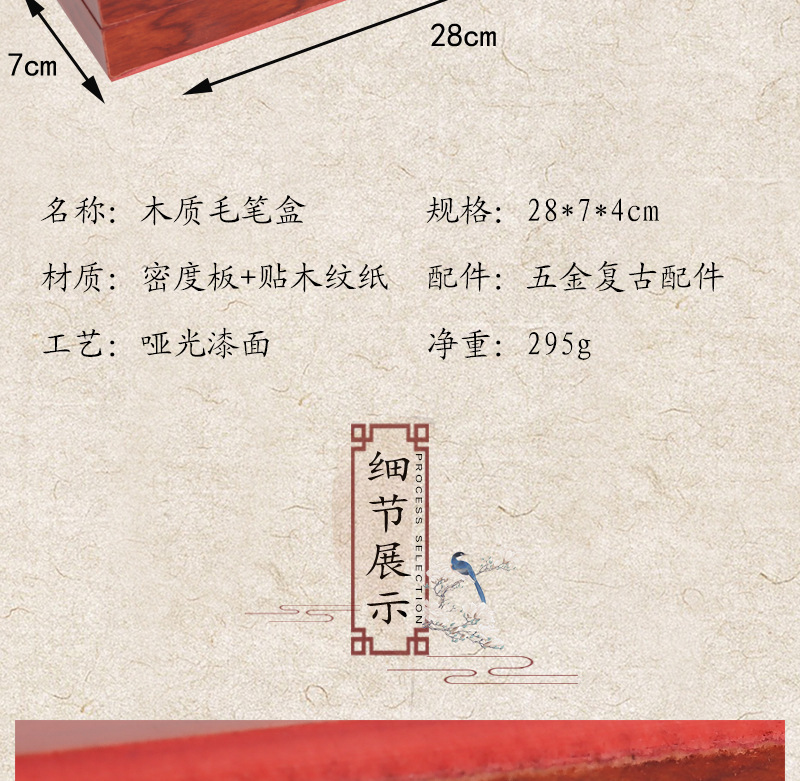 28cm
7cm
名称：木质毛笔盒
规格：28*7*4cm
材质：密度板+贴木纹纸
配件：五金复古配件
工艺：哑光漆面
净重：295g
细节展示
PROCESS SELECTION